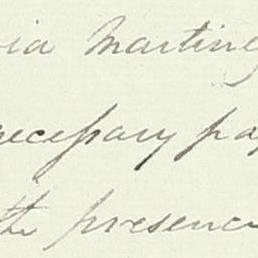 via Martine
necessary pa
the presenc